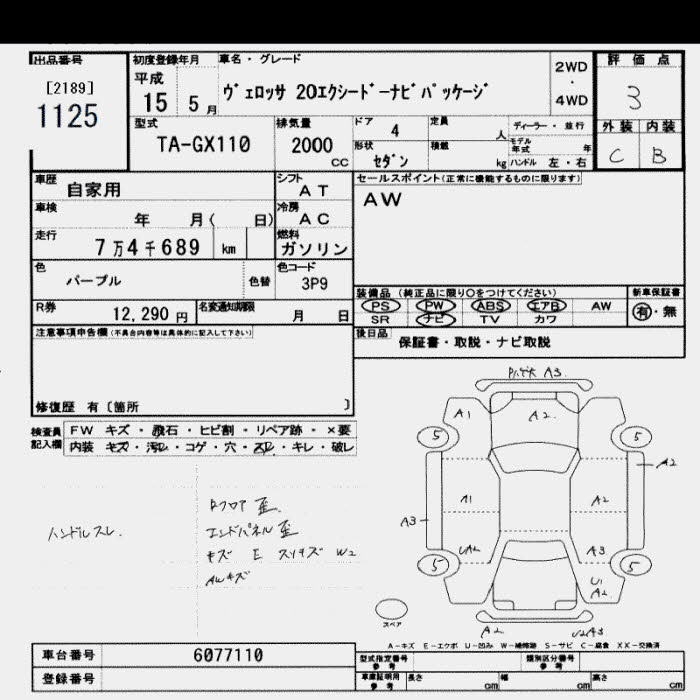 出品番号
[2189]
1125
初度登録年月
平成
15 5月
車名・グレード
ヴェロッサ 20エクシード－ナビパッケージ
2WD
・
4WD
評価点
3
外装 内装
C B
型式
TA-GX110
排気量
2000
CC
ドア 4
定員
人
形状
セダン
積載
kg
ディーラー・並行
モデル
年式 年
ハンドル 左・右
車歴
自家用
シフト
AT
車検
年 月( 日)
冷房
AC
走行
7万4千689 km
燃料
ガソリン
色
パープル
色替
色コード
3P9
R券
12,290円
名変通知期限
月 日
セールスポイント(正常に機能するものに限ります)
AW
装備品 (純正品に限り○をつけてください)
PS PW ABS エアB AW
SR ナビ TV カワ
新車保証書
有・無
後日品
保証書・取説・ナビ取説
注意事項申告欄(不具合内容等は具体的に記入して下さい)
修復歴 有〔箇所 〕
検査員
記入欄
FW キズ・飛石・ヒビ割・リペア跡・×要
内装 キズ・汚レ・コゲ・穴・スレ・キレ・破レ
ハンドルスレ.
Rフロア歪.
エンドパネル歪
キズ E スリキズ W2
AWキズ
A3.
A1 A2.
5 5
A2
A1 A2
A3
UA2 A3
5 5
U1
A2
スペア
A2 U2A3
A－キズ E－エクボ U－凹み W－補修跡 S－サビ C－腐食 XX－交換済
車台番号 6077110
登録番号
型式指定番号
参考
類別区分番号
参考
車庫証明用
参考
長さ cm
幅 cm
高さ cm